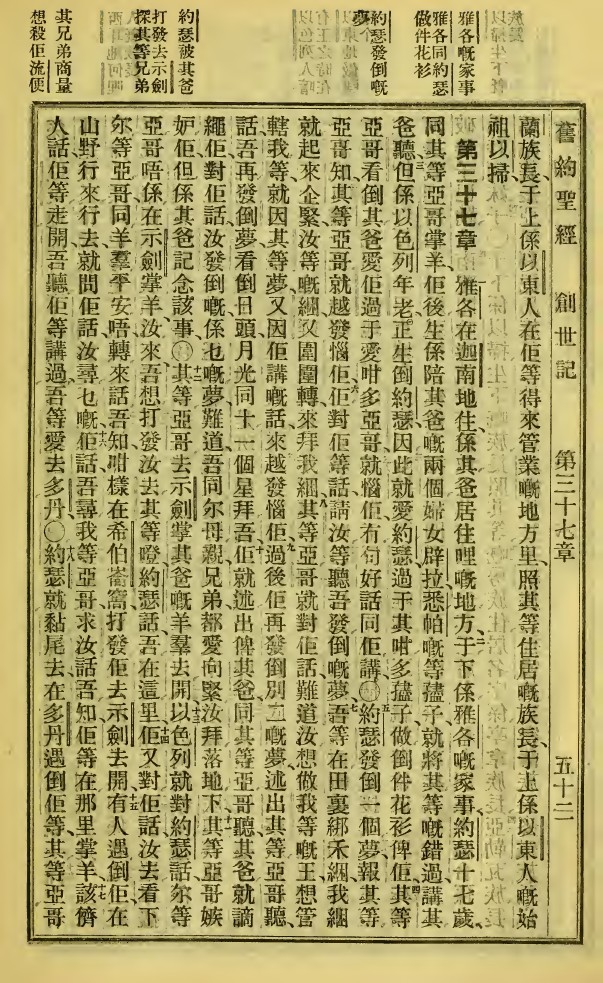 舊約聖經 創世記 第三十七章 五十二
雅各嘅家事
雅各同約瑟
做件花衫
約瑟發倒嘅
夢个
約瑟被其爸
打發去示劍
探其等兄弟
其兄弟商量
想殺佢流便
蘭族長于上係以東人在佢等得來管業嘅地方里照其等住居嘅族長于上係以東人嘅始
祖以掃
第三十七章 雅各在迦南地住係其爸居住哩嘅地方二于下係雅各嘅家事約瑟十七歲
同其等亞哥掌羊佢後生係陪其爸嘅兩個婦女辟拉悉帕嘅等孻子就將其等嘅錯過講其
爸聽三但係以色列年老正生倒約瑟因此就愛約瑟過于其咁多孻子做倒件花衫俾佢四其等
亞哥看倒其爸愛佢過于愛咁多亞哥就惱佢冇句好話同佢講〇五約瑟發倒一個夢報其等
亞哥知其等亞哥就越發惱佢六佢對佢等話請汝等聽吾發倒嘅夢七吾等在田裏綁禾綑我綑
就起來企緊汝等嘅綑又圍圍轉來拜我綑八其等亞哥就對佢話難道汝想做我等嘅王想管
轄我等就因其等夢又因佢講嘅話來越發惱佢九過後佢再發倒別二嘅夢述出其等亞哥聽
話吾再發倒夢看倒日頭月光同十一個星拜吾十佢就述出俾其爸同其等亞哥聽其爸就謫
繩佢對佢話汝發倒嘅係乜嘅夢難道吾同尔母親兄弟都愛向緊汝拜落地下十一其等亞哥嫉
妒佢但係其爸記念該事〇十二其等亞哥去示劍掌其爸嘅羊羣去開十三以色列就對約瑟話尔等
亞哥唔係在示劍掌羊汝來吾想打發汝去其等噔約瑟話吾在這里十四佢又對佢話汝去看下
尔等亞哥同羊羣平安唔轉來話吾知咁樣在希伯崙窩打發佢去示劍去開十五有人遇倒佢在
山野行來行去就問佢話汝尋乜嘅十六佢話吾尋我等亞哥求汝話吾知佢等在那里掌羊十七該儕
人話佢等走開吾聽佢等講過吾等愛去多丹〇十八約瑟就黏尾去在多丹遇倒佢等其等亞哥